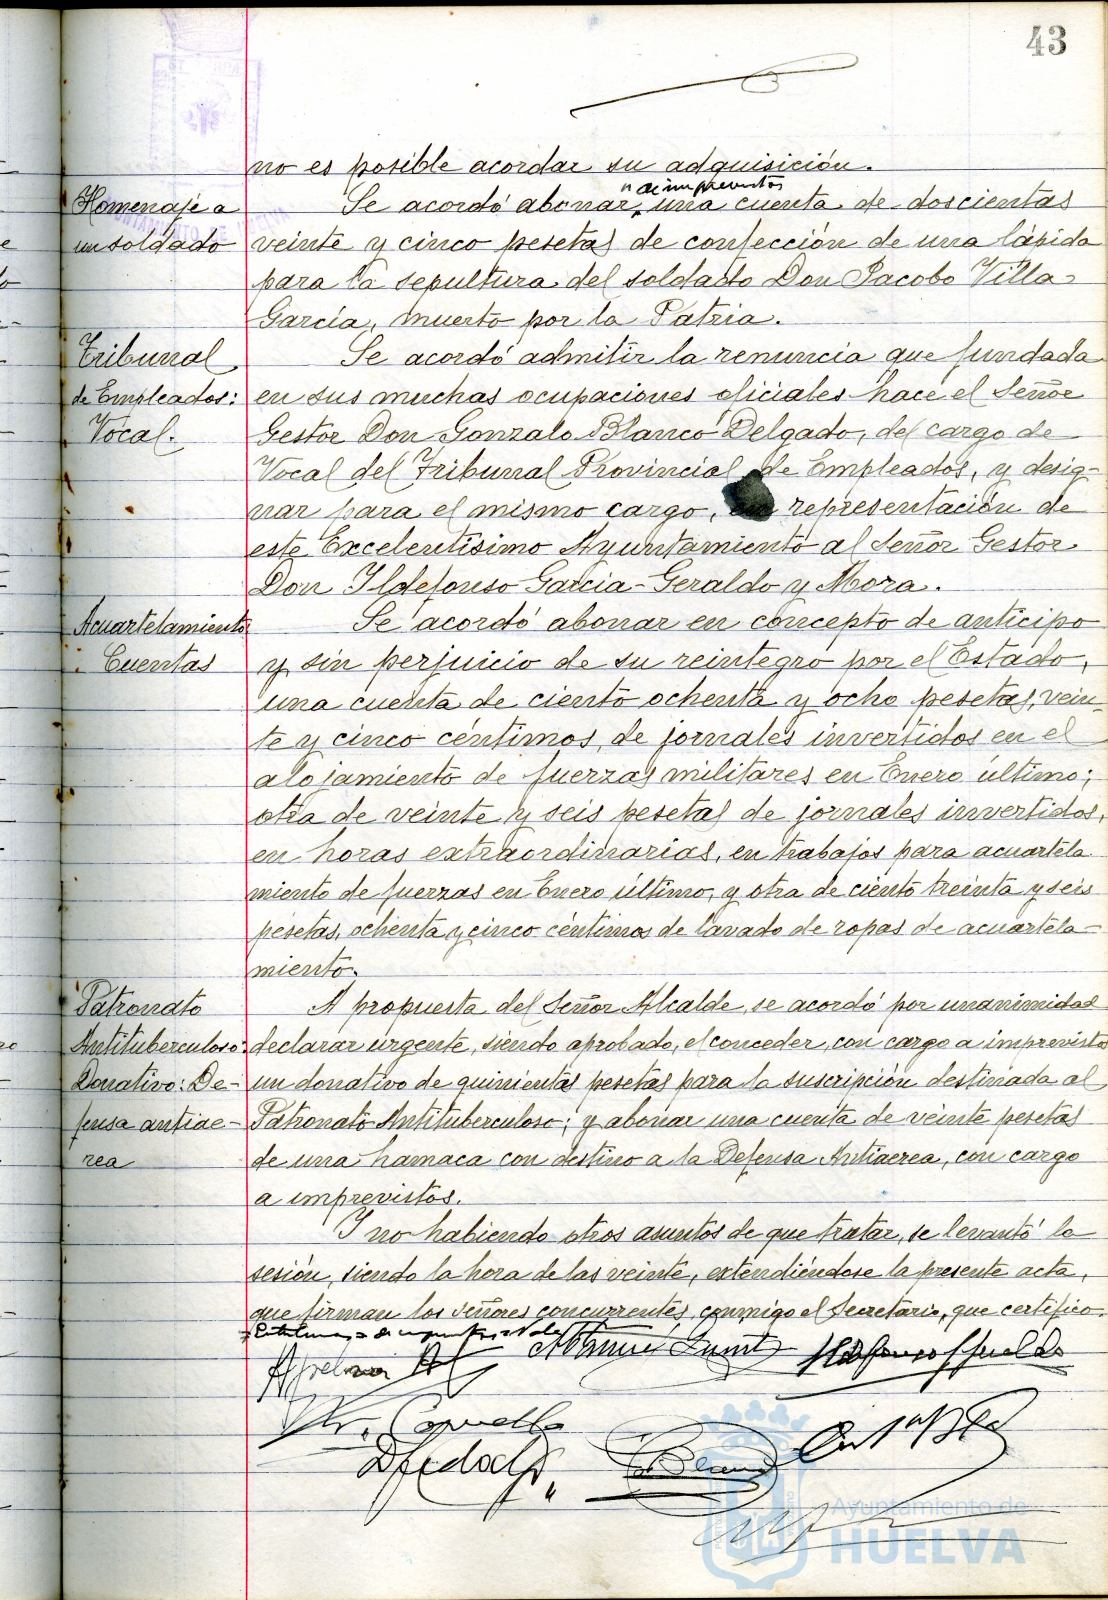 43
no es posible acordar su adquisición.
Homenaje a
un soldado
" de imprevistos
Se acordó abonar, una cuenta de doscientas
veinte y cinco pesetas de confección de una lápida
para la sepultura del soldado Don Jacobo Villa
García, muerto por la Patria.
Tribunal
de Empleados:
Vocal.
Se acordó admitir la renuncia que fundada
en sus muchas ocupaciones oficiales hace el Señor
Gestor Don Gonzalo Blanco Delgado, del cargo de
Vocal del Tribunal Provincial de Empleados, y desig-
nar para el mismo cargo, en representación de
este Excelentísimo Ayuntamiento al Señor Gestor
Don Ildefonso García-Geraldo y Mora.
Acuartelamiento
: Cuentas
Se acordó abonar en concepto de anticipo
y sin perjuicio de su reintegro por el Estado,
una cuenta de ciento ochenta y ocho pesetas, vein-
te y cinco céntimos, de jornales invertidos en el
alojamiento de fuerzas militares en Enero último;
otra de veinte y seis pesetas de jornales invertidos,
en horas extraordinarias, en trabajos para acuartela
miento de fuerzas en Enero último, y otra de ciento treinta y seis
pesetas, ochenta y cinco céntimos de lavado de ropas de acuartela-
miento.
Patronato
Antituberculoso:
Donativo: De-
fensa antiae-
rea
A propuesta del Señor Alcalde, se acordó por unanimidad
declarar urgente, siendo aprobado, el conceder, con cargo a imprevistos
un donativo de quinientas pesetas para la suscripción destinada al
Patronato Antituberculoso; y abonar una cuenta de veinte pesetas
de una hamaca con destino a la Defensa Antiaerea, con cargo
a imprevistos.
Y no habiendo otros asuntos de que tratar, se levantó la
sesión, siendo la hora de las veinte, extendiéndose la presente acta,
que firman los señores concurrentes, conmigo el Secretario, que certifico.
Ayuntamiento de
HUELVA